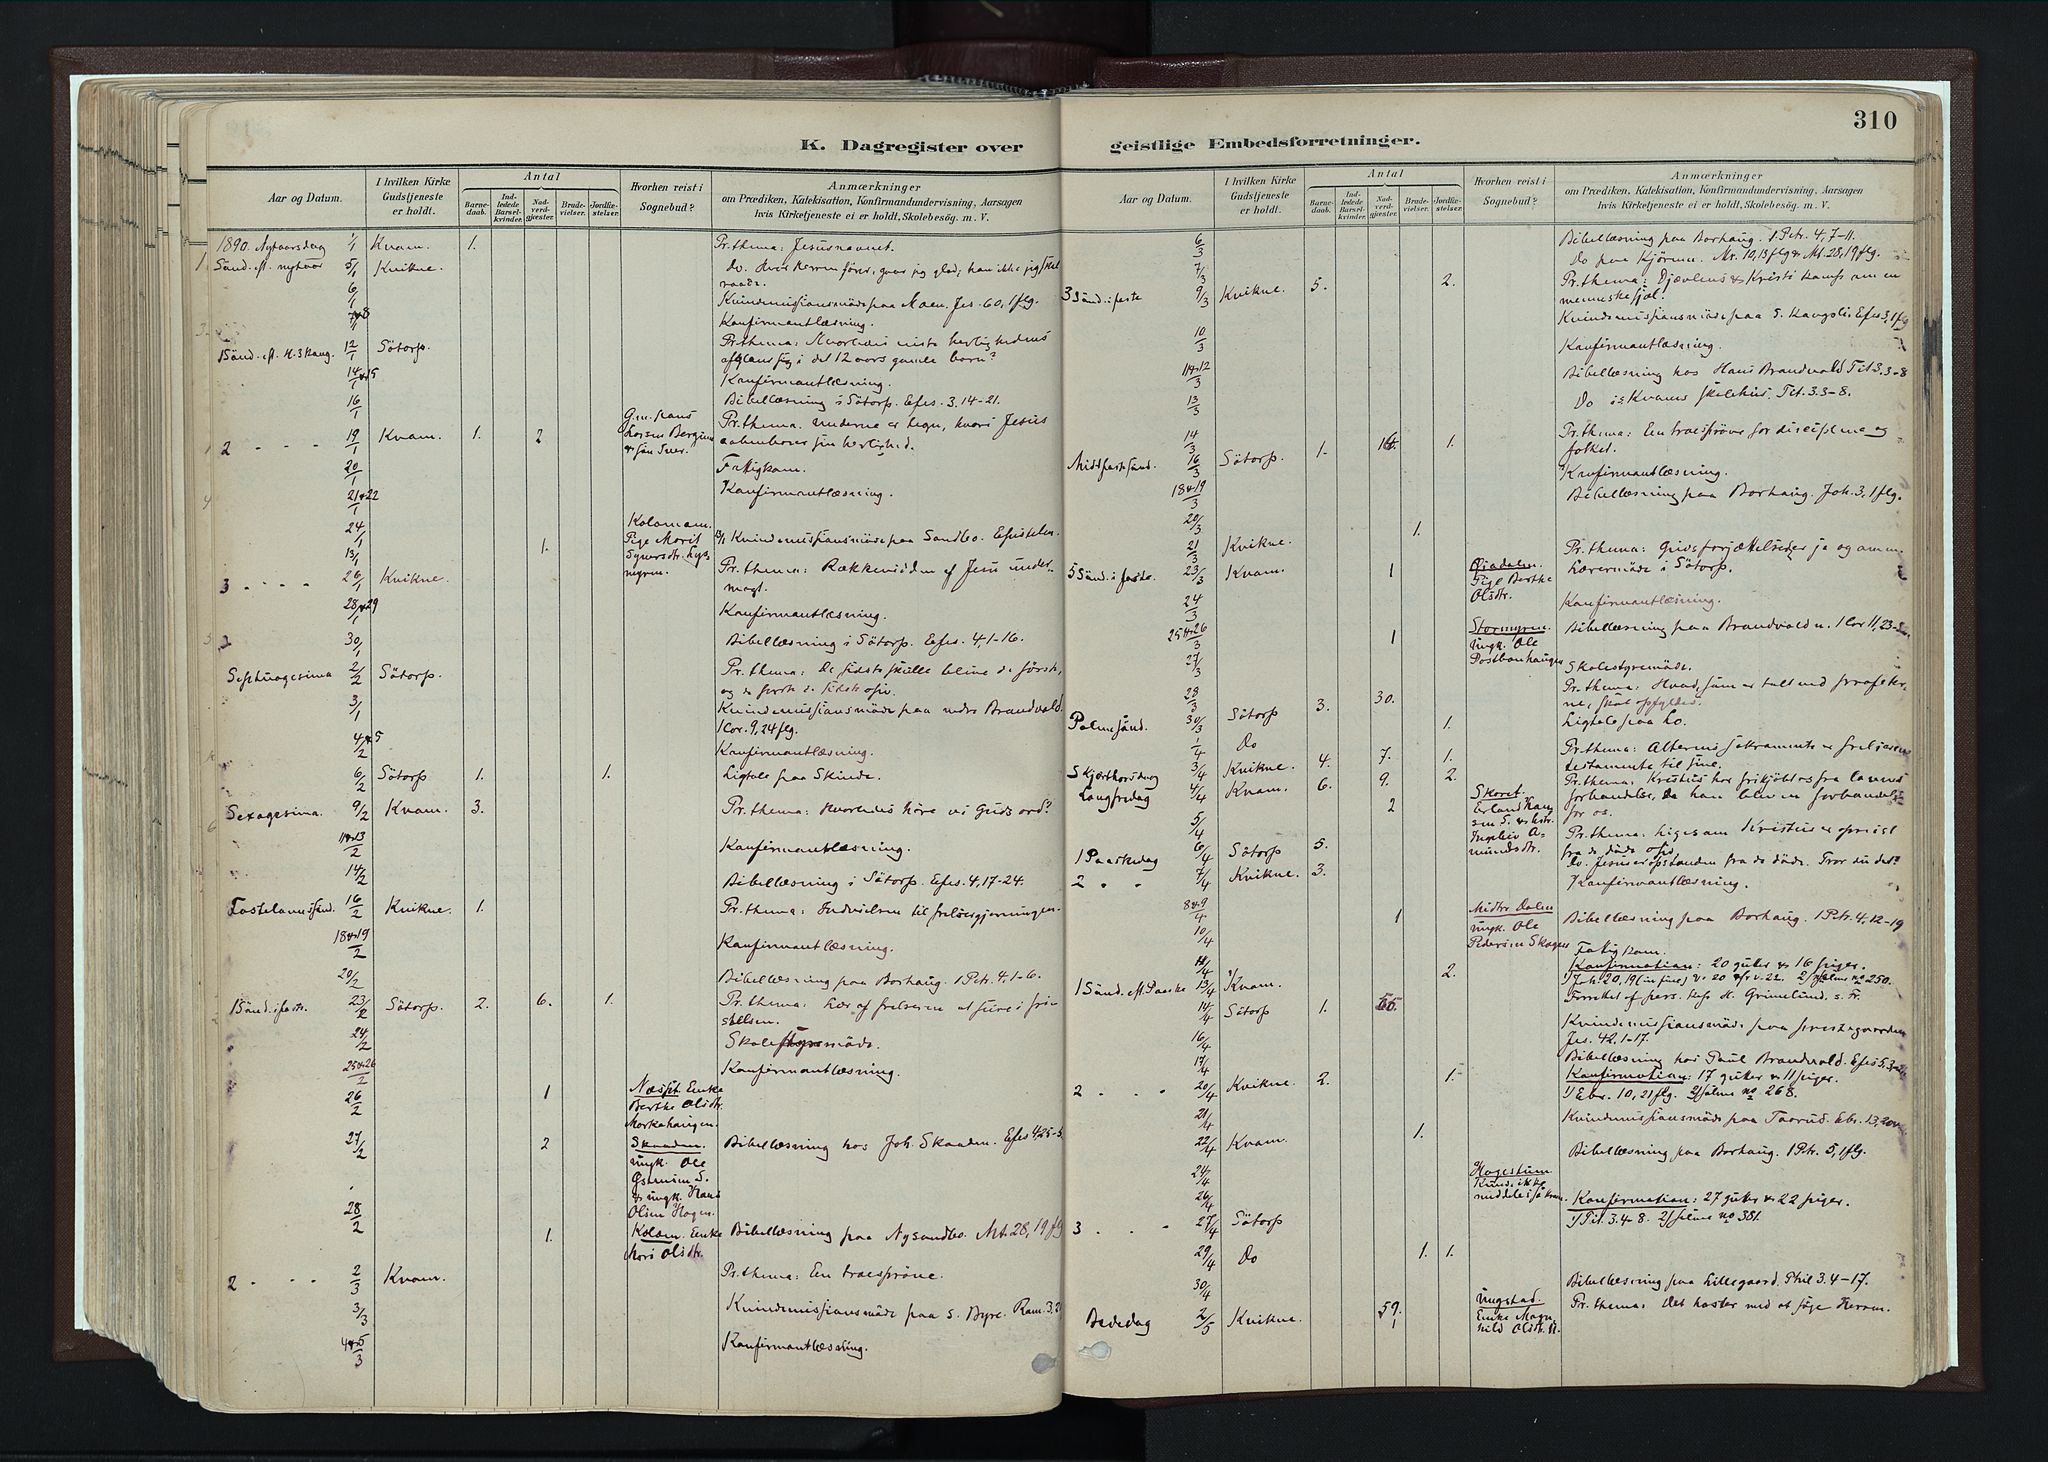 310
K. Dagregister over geistlige Embedsforretninger.
Aar og Datum.
I hvilken Kirke Gudstjeneste er holdt.
Antal
Barnedaab.
Indledede Barselkvinder.
Nadverdgjæster.
Brudevielser.
Jordfæstelser.
Hvorhen reist i Sognebud?
Anmærkninger
om Prædiken, Katekisation, Konfirmandundervisning, Aarsagen
hvis Kirketjeneste ei er holdt, Skolebesøg. m. V.
1890. Nytaarsdag 1/1 Kvam. 1. Pr. thema: Jesusnavnet.
Sönd. eft. nytaar 5/1 Kvikne. Do. Hvor Herren fører, gaar jeg glad;
6/1 Kvindemissionsmöde paa Moen. Jes. 60, 1 flg.
7&8/1 Konfirmantlæsning.
1 Sönd. eft. H. 3 Kong. 12/1 Södorp. Pr. thema: Hvorledes
i det 12 aars gamle barn?
14&15/1 Konfirmantlæsning.
16/1 Bibellæsning i Södorp. Efes. 3, 14-21.
2 " " 19/1 Kvam. 1. 2 Pr. thema: Underne er tegn, hvori Jesus
aabenbarer sin herlighed.
20/1 Fattigkom.
21&22/1 Konfirmantlæsning.
24/1 1. Kolomoen. Pige Marit
13/1 Kvindemissionsmöde paa Sandbo.
3 " " 26/1 Kvikne. Pr. thema: Rækkevidden af Jesu undermagt.
28&29/1 Konfirmantlæsning.
30/1 Bibellæsning i Södorp. Efes. 4, 1-16.
Septuagesima 2/2 Södorp. Pr. thema: De sidste skulle blive de förste,
og de förste de sidste
3/1 Kvindemissionsmöde paa nedre Brandvold.
1 Cor. 9, 24 flg.
4&5/2 Konfirmantlæsning.
6/2 Södorp 1. 1. Ligtale paa Skinde.
Sexagesima. 9/2 Kvam. 3. Pr. thema: Hvorledes höre vi Guds ord?
11&13/2 Konfirmantlæsning.
14/2 Bibellæsning i Södorp. Efes. 4, 17-24.
Fastelavnssönd. 16/2 Kvikne. 1. Pr. thema: Indvielsen til frelsergjerningen.
18&19/2 Konfirmantlæsning.
20/2 Bibellæsning paa Borhaug. 1 Petr. 4, 1-6.
1 Sönd. i faste. 23/2 Södorp. 2. 6. 1. Pr. thema: Lær af frelseren at seire i fristelsen.
24/2 Skolestyremöde.
25&26/2 Konfirmantlæsning.
26/2 1 Næsset. Enke Berthe Olsdtr.
27/2 2 Skaaden. ungk. Ole
& ungk. Hans Olsen Hagen.
Bibellæsning hos Joh. Skaaden. Efes 4, 25-5.
28/2 1. Kolom. Enke Mari Olsdtr. Bibellæsning paa Nysandbo. Mt. 28, 19 flg
2 " " 2/3 Kvam. Pr. thema: En troesprøve.
3/3 Kvindemissionsmöde paa S. Byre. Rom. 3,
4&5/3 Konfirmantlæsning.
6/3 Bibellæsning paa Borhaug. 1 Petr. 4, 7-11.
7/3 Do paa Kjörum. Mr. 10, 13 flg & Mt. 28, 19 flg.
3 Sönd. i faste 9/3 Kvikne. 5. 2. Pr. thema: Djævelens & Kristi kamp om en
menneskesjæl.
10/3 Kvindemissionsmöde paa S. Efes 3, 1 flg
11&12/3 Konfirmantlæsning.
13/3 Bibellæsning hos Hans Brandvold Tit 3. 3-8
14/3 Do i Kvams skolehus. Tit. 3. 3-8.
Midtfastesönd. 16/3 Södorp. 1. 1. Pr. thema: En troesprøve for disciplene og
folket.
18&19/3 Konfirmantlæsning.
20/3 Bibellæsning paa Borhaug. Joh. 3, 1 flg.
21/3 Kvikne. 1.
5 Sönd. i faste. 23/3 Kvam. 1 Pige Berthe Olsdtr. Pr. thema: Guds forjættelser ja og amen.
24/3 Lærermöde i Södorp.
25&26/3 Konfirmantlæsning.
27/3 1 Stormyren. ungk. Ole Bibellæsning paa Brandvold n. 1 Cor 11, 23
28/3 Skolestyremöde.
Palmesönd. 30/3 Södorp 3. 30. Pr. thema: Hvad, som er talt ved profeterne, skal opfyldes.
1/4 Do 1. Ligtale paa Lo.
Skjærthorsdag 3/4 Kvikne. 4. 7. 1. Pr. thema: Alterens sakramente er frelserens
testamente til sine.
Langfredag 4/4 Kvam. 6. 9. 2. Pr. thema: Kristus har frikjøbt os fra lovens
forbandelse, da han blev en forbandelse
for os.
5/4 2 Skoret.
1 Paaskedag 6/4 Södorp 5. Pr. thema: Ligesom Kristus er opreist
fra de døde
2 " " 7/4 Kvikne. 3. Do. Jesus er opstanden fra de døde. Tror du det?
8&9/4 Konfirmantlæsning.
10/4 1 Midtre Dalen ungk. Ole Pedersen Skogen Bibellæsning paa Borhaug. 1 Petr. 4, 12-19
11/4 Fattigkom.
1 Sönd. eft. Paaske 13/4 Kvam. 2. Konfirmation: 20 gutter & 16 piger.
1) Joh. 20, 19 (in fine) & v. 20 & v. 22. 2) psalme no 250.
14/4 Södorp 1. Forrettet af pers. kap. H. Grimelund, s. Fr.
16/4 Kvindemissionsmöde paa prestegaarden
Jes. 42, 1-17.
17/4 Bibellæsning hos Paul Brandvold. Efes 5,
2 " " 20/4 Kvikne. 2. 1. Konfirmation: 17 gutter & 11 piger.
1) Ebr. 10, 21 flg. 2) psalme no 268.
21/4 Kvindemissionsmöde paa Taarud. Ebr. 13,
22/4 Kvam. 1.
24/4 Bibellæsning paa Borhaug. 1 Petr. 5, 1 flg.
26/4 Hagestuen
3 " " 27/4 Södorp Konfirmation: 27 gutter & 22 piger.
1) Tit. 3. 4-8. 2) psalme no 381.
29/4 Do 1. 1.
30/4 Bibellæsning paa Lillegaard. Phil 3. 4-17.
Bededag 2/5 Kvikne. 59. 1 Ungstad. Enke Magnhild Olsdtr. Pr. thema: Det haster med at søge Herren.